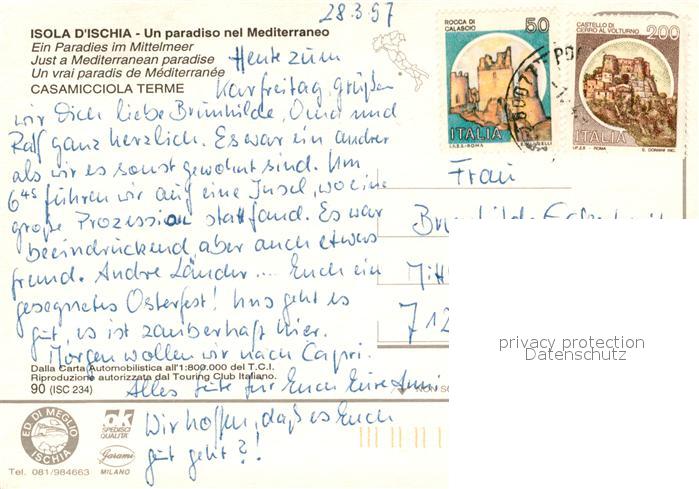 28.3.97
ISOLA D'ISCHIA - Un paradiso nel Mediterraneo
Ein Paradies im Mittelmeer
Just a Mediterranean paradise
Un vrai paradis de Méditerranée
CASAMICCIOLA TERME
Heute zum
Karfreitag grüßen
wir Dich liebe Brunhilde, Oma und
Ralf ganz herzlich. Es war ein andrer
als wir es sonst gewohnt sind. Um
6 45 fuhren wir auf eine Insel, wo eine
große Prozession stattfand. Es war
beeindruckend, aber auch etwas
fremd. Andre Länder .... Euch ein
gesegnetes Osterfest! Uns geht es
gut, es ist zauberhaft hier.
Morgen wollen wir nach Capri.
Alles Gute für Euch Eure
Wir hoffen, daß es Euch
gut geht?!
Dalla Carta Automobilistica all'1:800.000 del T.C.I.
Riproduzione autorizzata dal Touring Club Italiano.
90 (ISC 234)
ED. DI MEGLIO
ISCHIA
Tel. 081/984663
ok
SPEDISCI
QUALITA'
Garami
MILANO
ROCCA DI
CALASCIO
50
ITALIA
I.P.Z.S. - ROMA
CASTELLO DI
CERRO AL VOLTURNO
200
ITALIA
I.P.Z.S. - ROMA
Frau
712
privacy protection
Datenschutz